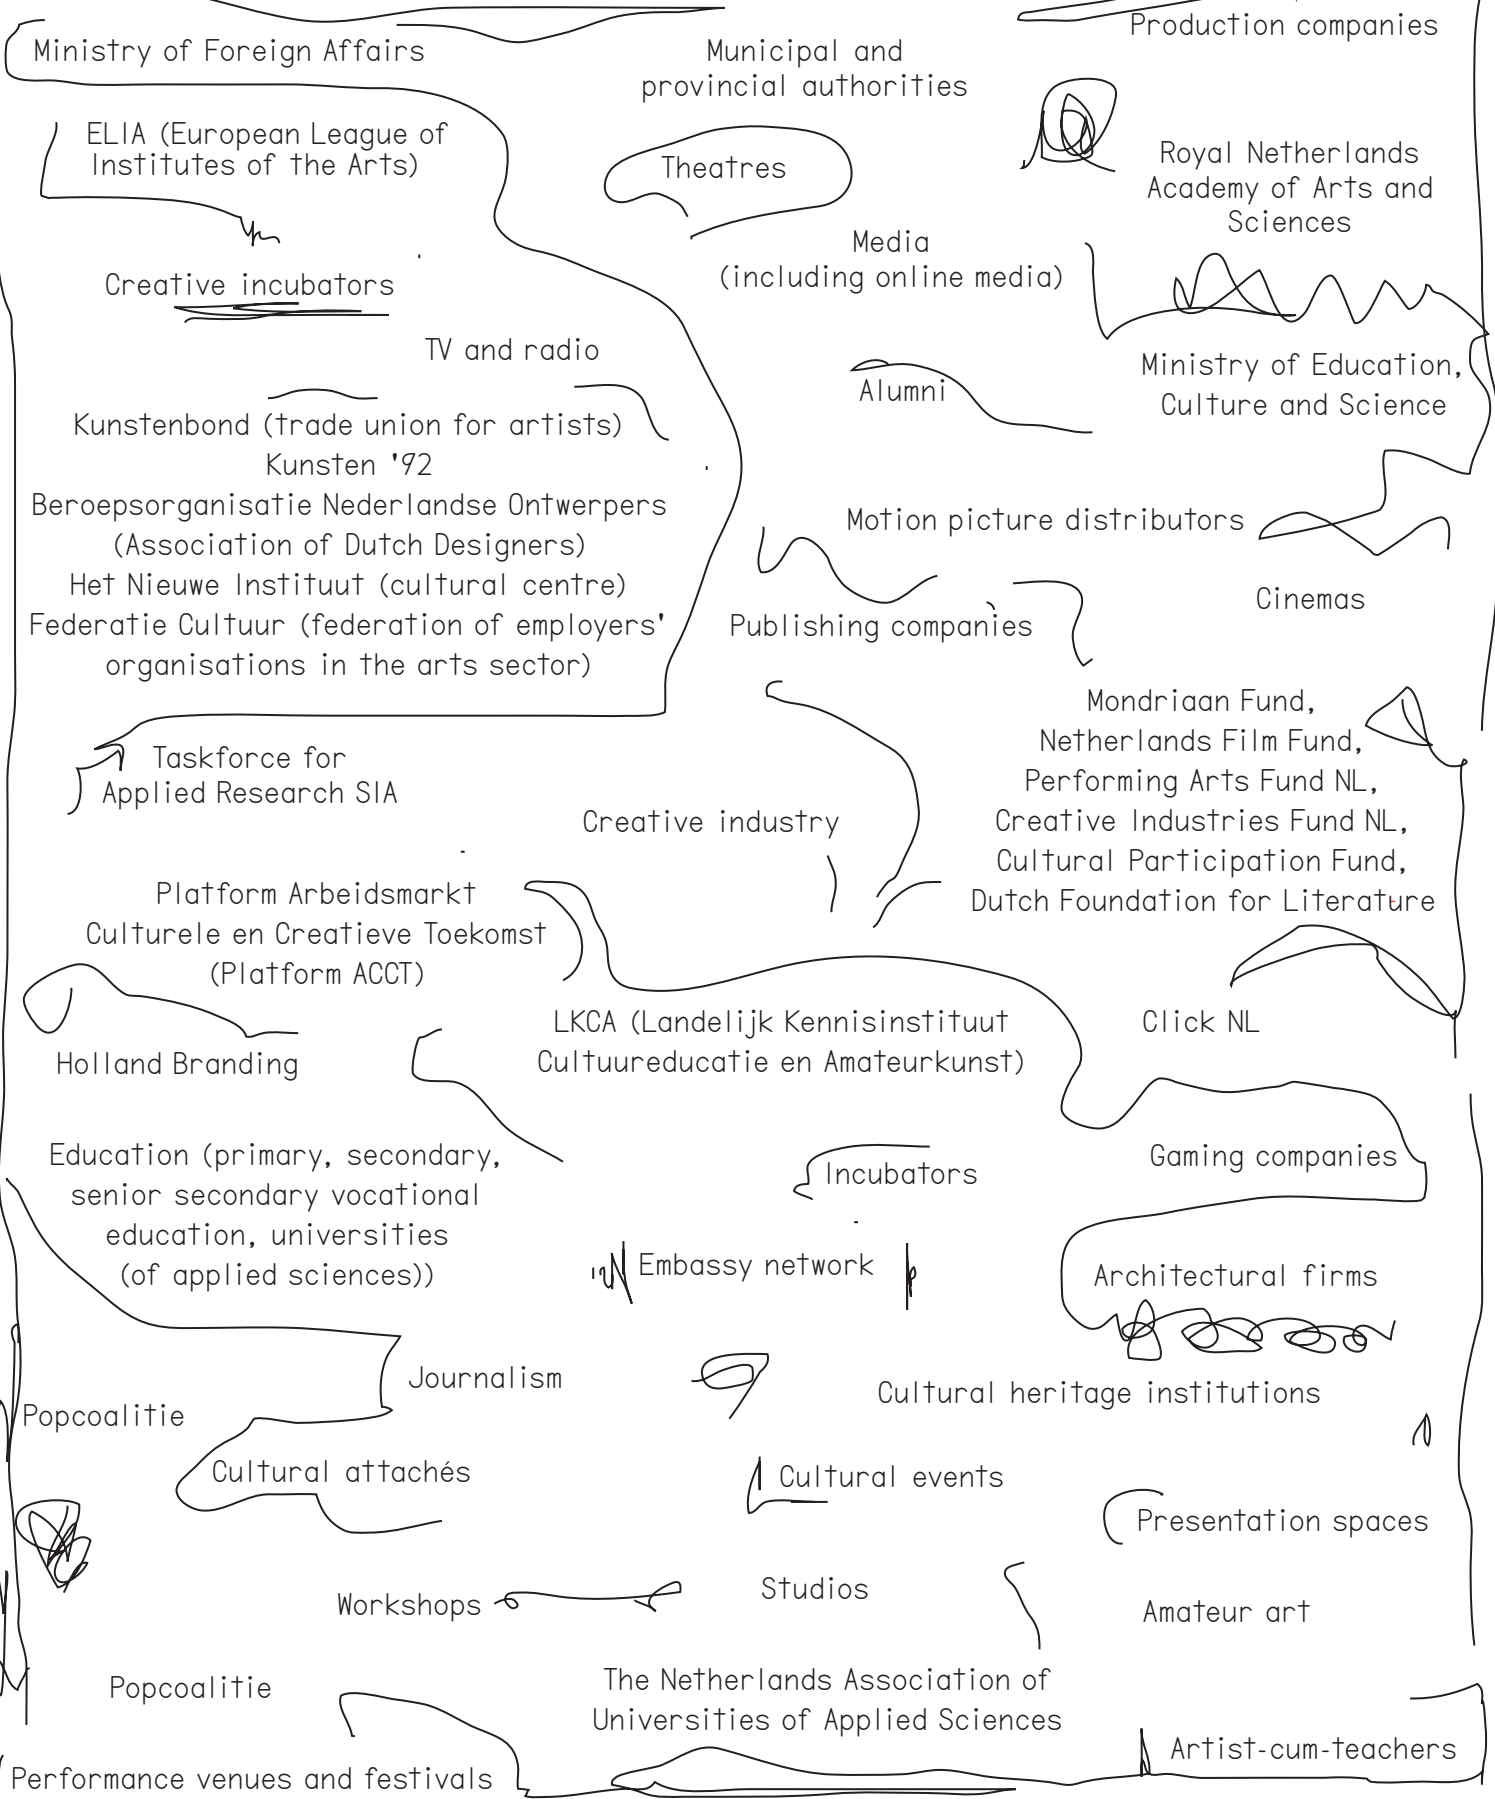 Production companies
Ministry of Foreign Affairs
Municipal and
provincial authorities
ELIA (European League of
Institutes of the Arts)
Theatres
Royal Netherlands
Academy of Arts and
Sciences
Media
(including online media)
Creative incubators
TV and radio
Ministry of Education,
Culture and Science
Alumni
Kunstenbond (trade union for artists)
Kunsten '92
Beroepsorganisatie Nederlandse Ontwerpers
(Association of Dutch Designers)
Het Nieuwe Instituut (cultural centre)
Federatie Cultuur (federation of employers'
organisations in the arts sector)
Motion picture distributors
Cinemas
Publishing companies
Mondriaan Fund,
Netherlands Film Fund,
Performing Arts Fund NL,
Creative Industries Fund NL,
Cultural Participation Fund,
Dutch Foundation for Literature
Taskforce for
Applied Research SIA
Creative industry
Platform Arbeidsmarkt
Culturele en Creatieve Toekomst
(Platform ACCT)
LKCA (Landelijk Kennisinstituut
Cultuureducatie en Amateurkunst)
Click NL
Holland Branding
Education (primary, secondary,
senior secondary vocational
education, universities
(of applied sciences))
Gaming companies
Incubators
Embassy network
Architectural firms
Journalism
Cultural heritage institutions
Popcoalitie
Cultural attachés
Cultural events
Presentation spaces
Workshops
Studios
Amateur art
Popcoalitie
The Netherlands Association of
Universities of Applied Sciences
Artist-cum-teachers
Performance venues and festivals